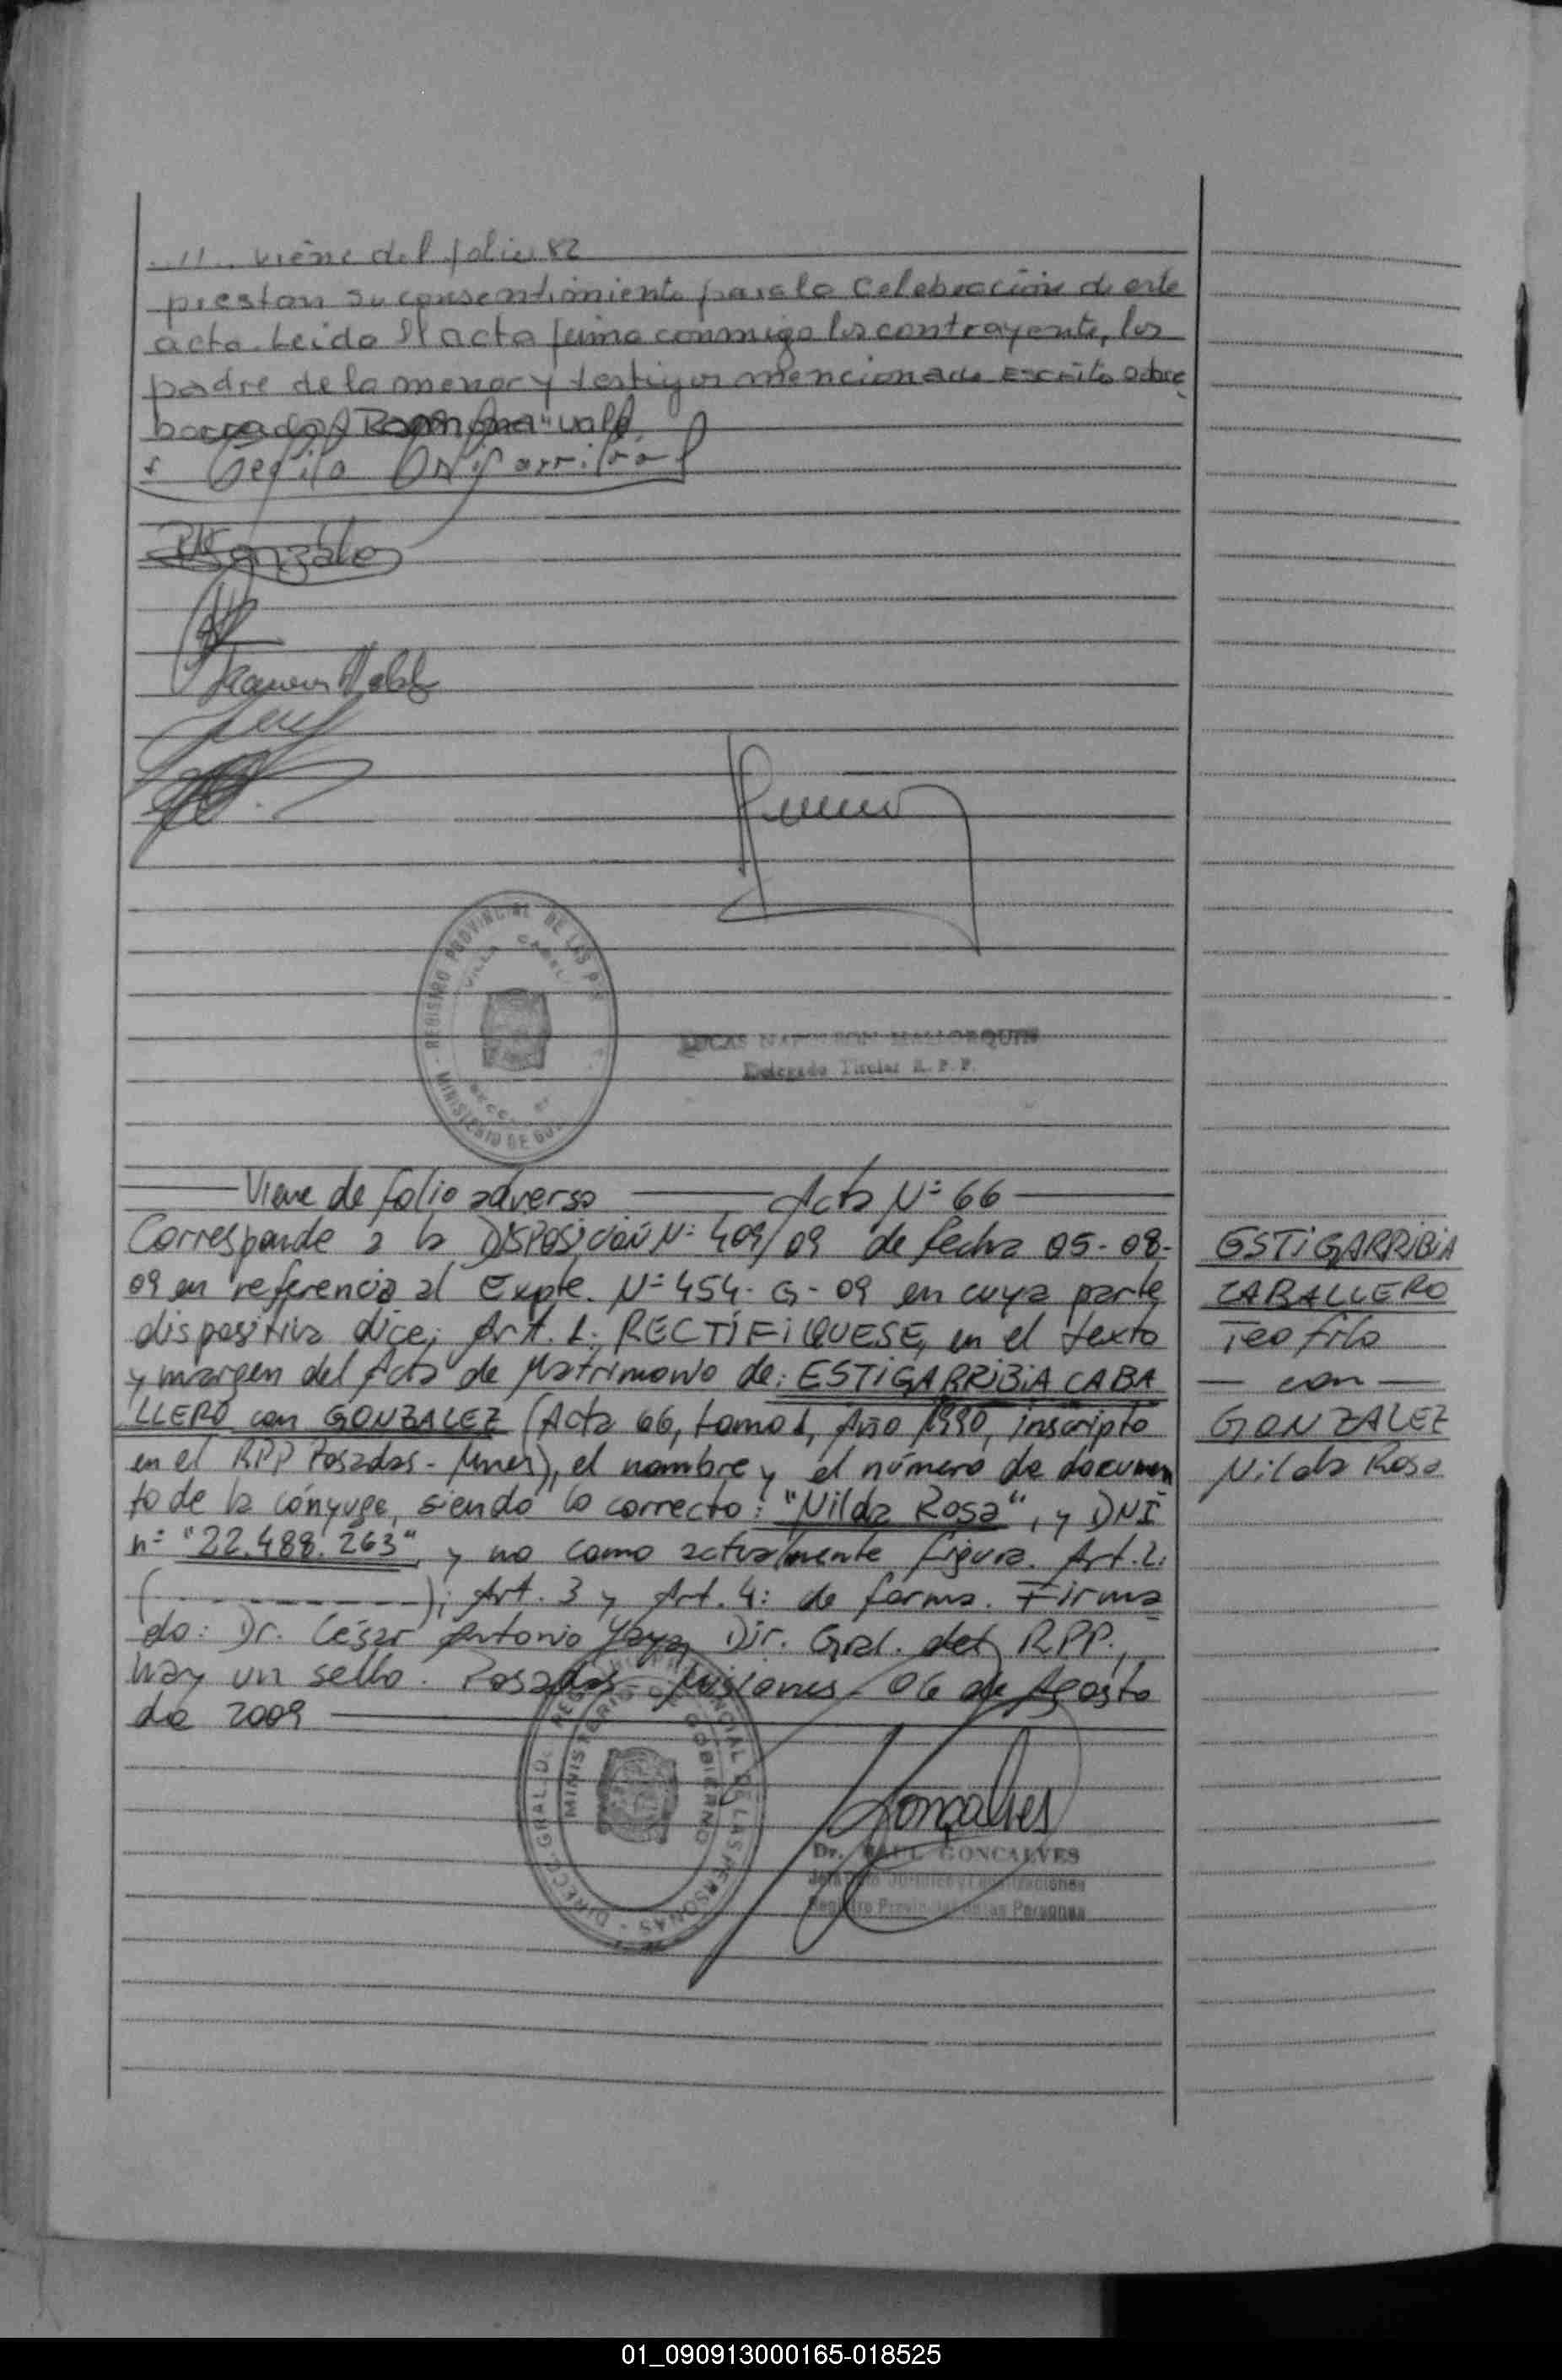 ..//.. viene del folio 82
prestan su consentimiento para la celebración de este
acta. Leida El acta firma conmigo los contrayente, los
padre de la menor y testigos mencionado Escrito sobre
borrado
González
REGISTRO PROVINCIAL DE LAS
VILLA CABELLO
MINISTERIO DE
LUCAS NAPOLEON MALLORQUIN
Delegado Titular R. P. P.
Viene de folio adverso Acta Nº 66
Corresponde a la DISPOSICIÓN Nº 409/09 de fecha 05-08-
09 en referencia al Expte. Nº 454-G-09 en cuya parte
dispositiva dice; Art. 1: RECTIFIQUESE, en el texto
y margen del Acta de Matrimonio de: ESTIGARRIBIA CABA
LLERO con GONZALEZ (Acta 66, tomo 1, Año 1990, inscripto
en el RPP Posadas - Mnes), el nombre y el número de documen
to de la cónyuge, siendo lo correcto: "Nilda Rosa", y DNI
nº "22.488.263" y no como actualmente figura. Art. 2:
(----------); Art. 3 y Art. 4: de forma. Firma
do: Dr. César Antonio Yaya, Dir. Gral. del RPP.,
hay un sello. Posadas - Misiones - 06 de Agosto
de 2009
ESTIGARRIBIA
CABALLERO
Teofilo
— con —
GONZALEZ
Nilda Rosa
DIRECC. GRAL. D. REGISTRO PROVINCIAL DE LAS PERSONAS
MINISTERIO DE GOBIERNO
Goncalves
Dr. RAUL GONCALVES
Registro Provincial de las Personas
01_090913000165-018525